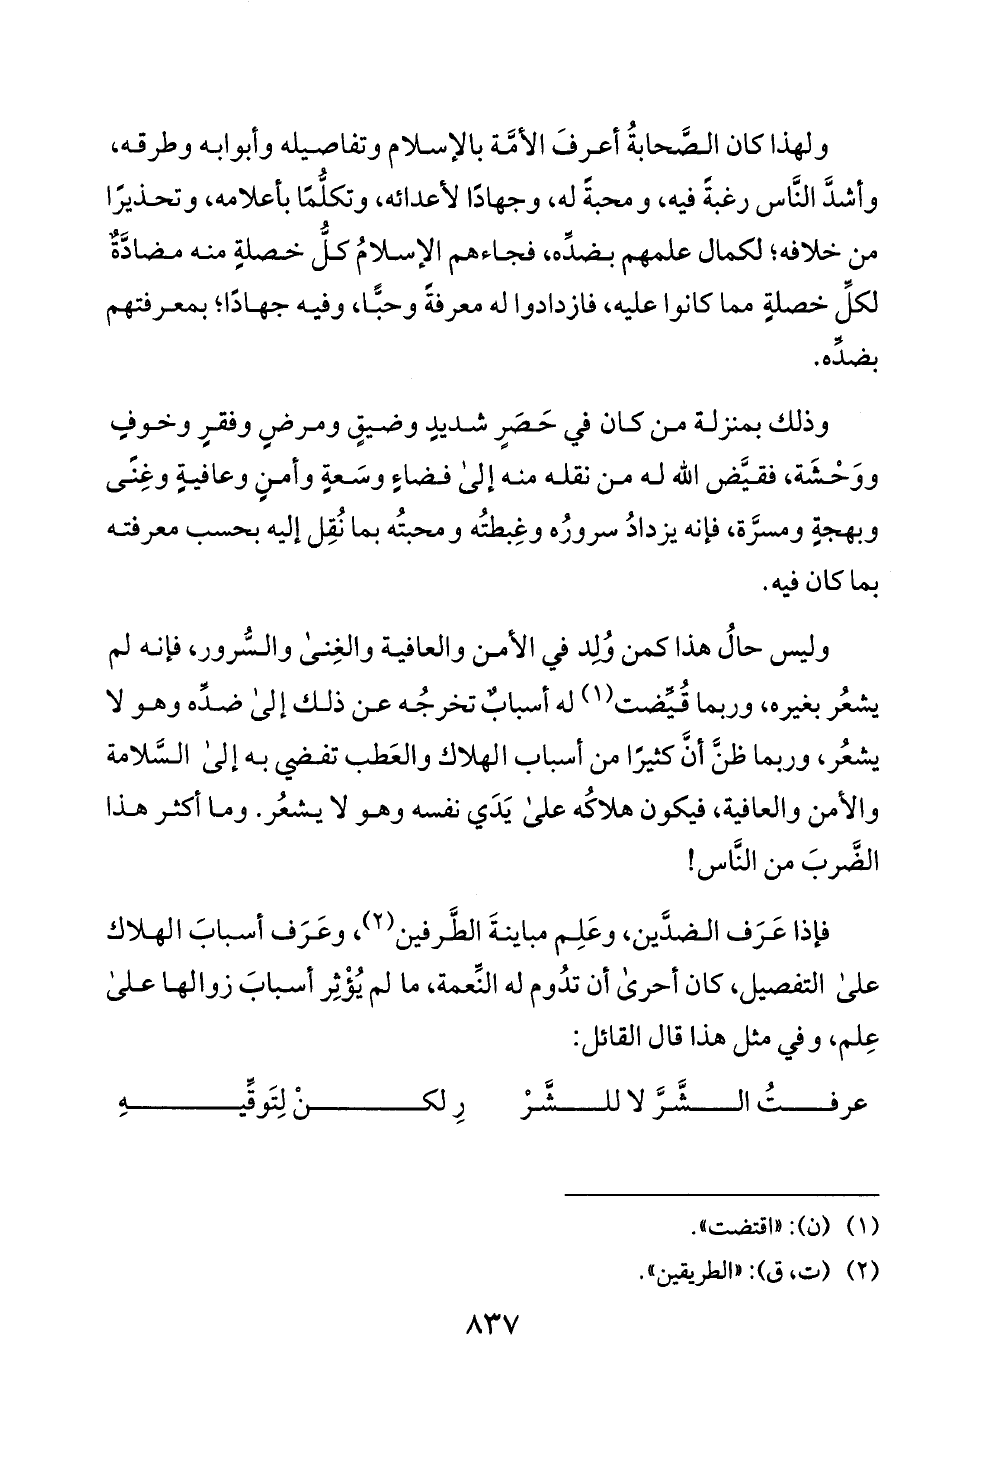 ولهذا كان الصَّحابةُ أعرفَ الأمَّة بالإسلام وتفاصيله وأبوابه وطرقه،
وأشدَّ النَّاس رغبةً فيه، ومحبةً له، وجهادًا لأعدائه، وتكلُّمًا بأعلامه، وتحذيرًا
من خلافه؛ لكمال علمهم بضدِّه، فجاءهم الإسلامُ كلُّ خصلةٍ منه مضادَّةٌ
لكلِّ خصلةٍ مما كانوا عليه، فازدادوا له معرفةً وحبًّا، وفيه جهادًا؛ بمعرفتهم
بضدِّه.
وذلك بمنزلة من كان في حَصَرٍ شديدٍ وضيقٍ ومرضٍ وفقرٍ وخوفٍ
ووَحْشَة، فقيَّض الله له من نقله منه إلىٰ فضاءٍ وسَعةٍ وأمنٍ وعافيةٍ وغِنًى
وبهجةٍ ومسرَّة، فإنه يزدادُ سرورُه وغِبطتُه ومحبتُه بما نُقِل إليه بحسب معرفته
بما كان فيه.
وليس حالُ هذا كمن وُلِد في الأمن والعافية والغِنىٰ والسُّرور، فإنه لم
يشعُر بغيره، وربما قُيِّضت(١) له أسبابٌ تخرجُه عن ذلك إلىٰ ضدِّه وهو لا
يشعُر، وربما ظنَّ أنَّ كثيرًا من أسباب الهلاك والعَطب تفضي به إلىٰ السَّلامة
والأمن والعافية، فيكون هلاكُه علىٰ يَدَي نفسه وهو لا يشعُر. وما أكثر هذا
الضَّربَ من النَّاس!
فإذا عَرَف الضدَّين، وعَلِم مباينةَ الطَّرفين(٢)، وعَرَف أسبابَ الهلاك
علىٰ التفصيل، كان أحرىٰ أن تدُوم له النِّعمة، ما لم يُؤْثِر أسبابَ زوالها علىٰ
عِلم، وفي مثل هذا قال القائل:
عرفتُ الشَّرَّ لا للشَّرْ رِ لكنْ لِتَوقِّيهِ
(١) (ن): «اقتضت».
(٢) (ت، ق): «الطريقين».
٨٣٧